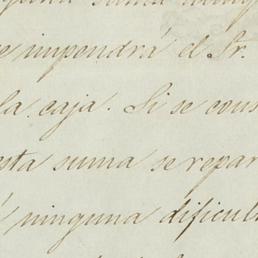 e impendrá el Sr.
la caja. Si se cons
esta suma se repar
ninguna dificult